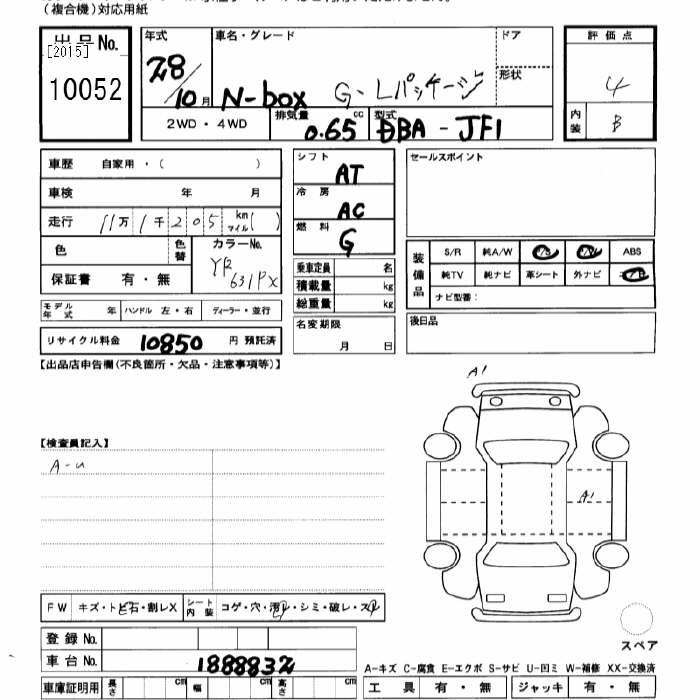 (複合機)対応用紙
出品No.
[2015]
10052
年式 28/10月
車名・グレード N-box G・Lパッケージ
ドア
形状
評価点 4
内装 B
2WD・4WD
排気量 0.65 cc
型式 DBA-JF1
車歴 自家用・( )
車検 年 月
走行 11万1千205 km マイル( )
色
色替
カラーNo. YR631PX
保証書 有・無
モデル年式 年
ハンドル 左・右
ディーラー・並行
リサイクル料金 10850 円 預託済
シフト AT
冷房 AC
燃料 G
乗車定員 名
積載量 kg
総重量 kg
名変期限
月 日
セールスポイント
装備品
S/R 純A/W P/S P/W ABS
純TV 純ナビ 革シート 外ナビ
ナビ型番:
後日品
【出品店申告欄(不良箇所・欠品・注意事項等)】
A1
【検査員記入】
A-u
A1
FW キズ・トビ石・割レX
シート内装 コゲ・穴・汚レ・シミ・破レ・スレ
スペア
登録No.
車台No. 1888832
A-キズ C-腐食 E-エクボ S-サビ U-凹ミ W-補修 XX-交換済
車庫証明用 長さ cm 幅 cm 高さ cm
工具 有・無 ジャッキ 有・無